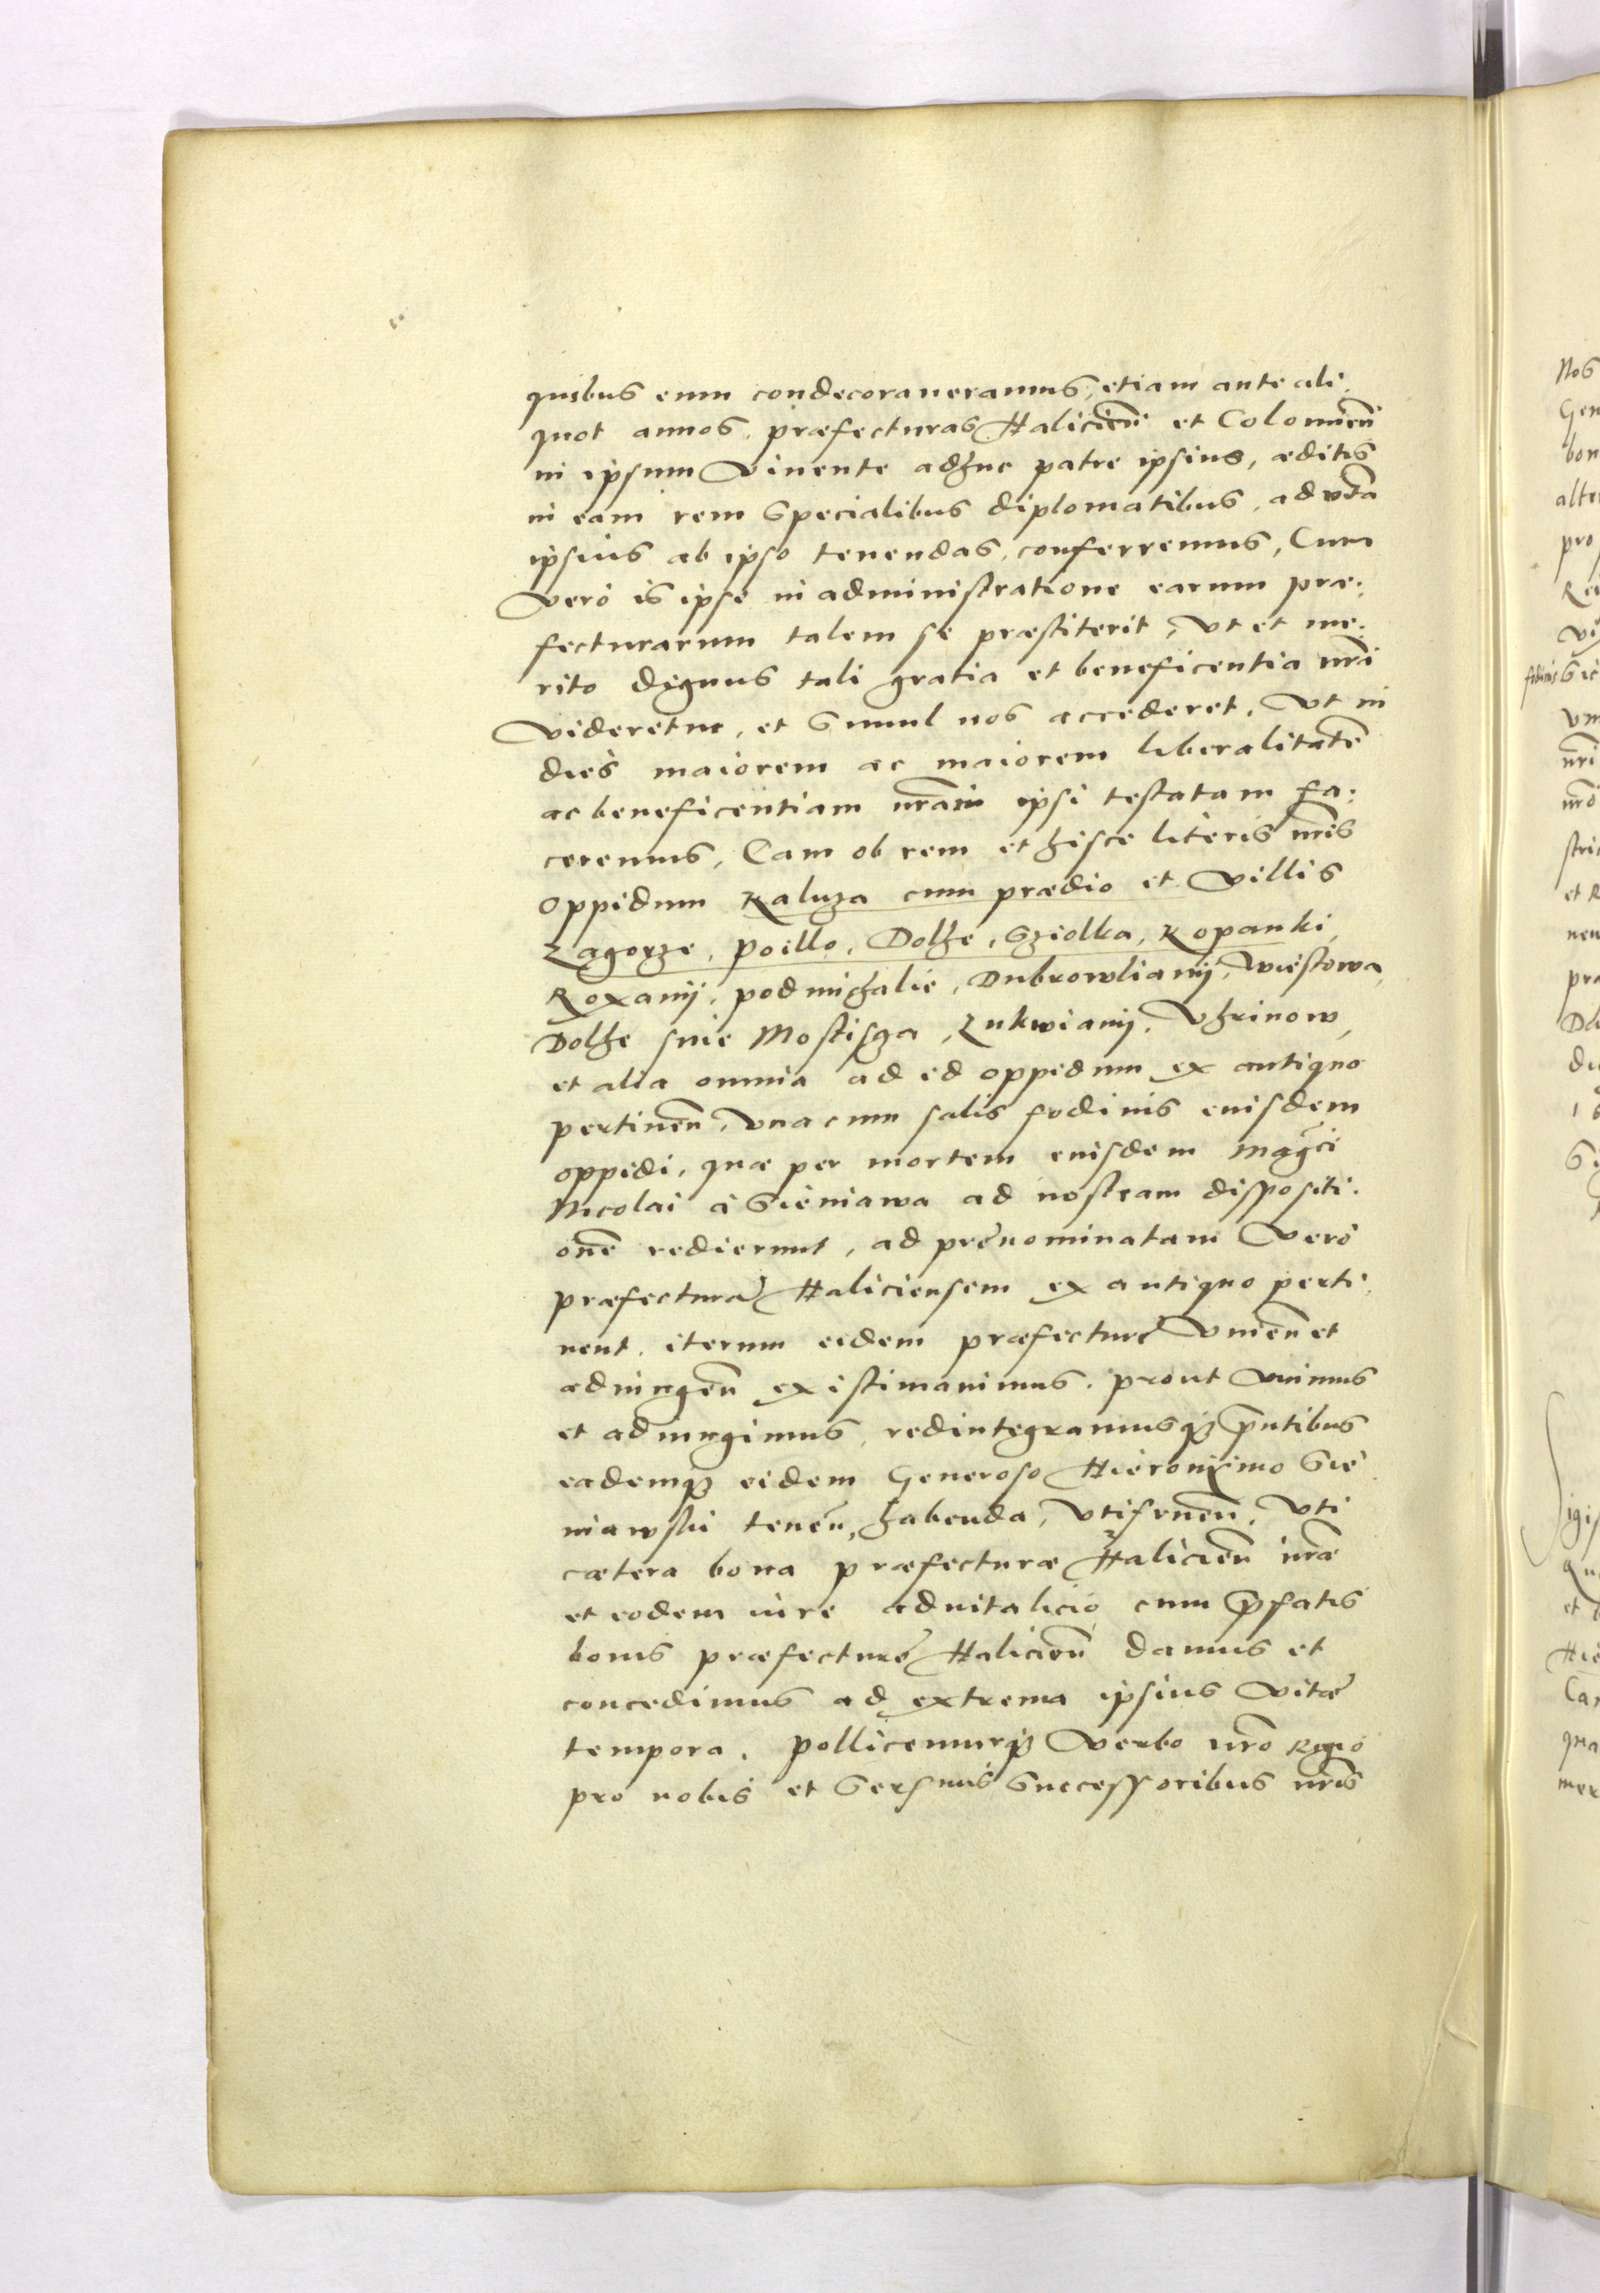 quibus eum condecoraueramus, etiam ante ali,
quot annos, præfecturas Halicien̄ et Colomien̄
in ipsum Viuente adhuc patre ipsius, æditis
in eam rem Specialibus diplomatibus, ad vitā
ipsius ab ipso tenendas, conferremus, Cum
Vero is ipse in administratione earum præ,
fecturarum talem se præstiterit, Vt et me,
rito dignus tali gratia et beneficentia nr̄a
Videretur, et Simul nos accederet, Vt in
dies maiorem ac maiorem liberalitatē
ac beneficentiam nr̄am ipsi testatam fa,
ceremus, Eam ob rem et hisce literis nr̄is
Oppidum Kaluza cum prædio et Villis
Zagorze, Poillo, Dolhe, Sziolka, Kopanki,
Roxanij, Podmihalie, Dubrowlianij, Wiestowa,
Dolhe siue Mostisza, Zukwianij, Vhrinow,
et alia omnia ad id oppidum ex antiquo
pertinen̄, Vna cum salis fodinis eiusdem
oppidi, quæ per mortem eiusdem Mag̃ci
Nicolai à Sieniawa ad nostram dispositi,
onē redierunt, ad prænominatam Vero
præfecturā Haliciensem ex antiquo perti,
nent, iterum eidem præfecturę Vnien̄ et
adiungen̄ existimauimus, prout Vnimus
et adiungimus, redintegramusqȝ p̄ntibus
eademqȝ eidem Generoso Hieronimo Sie
niawski tenen̄, habenda, Vtifruen̄, Vti
cætera bona præfecturæ Halicien̄ nr̄æ
et eodem iure aduitalicio cum p̄fatis
bonis præfecturę Halicien̄ damus et
concedimus ad extrema ipsius Vitæ
tempora. Pollicemurqȝ Verbo nr̄o Regio
pro nobis et Serſmis Successoribus nr̄is